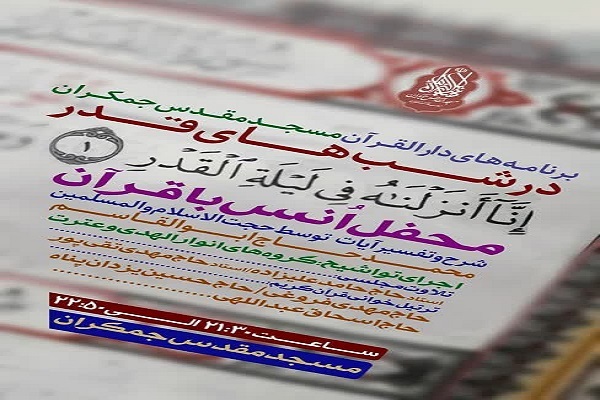 برنامه‌های دارالقرآن مسجد مقدس جمکران
در شب‌های قدر
إِنَّا أَنزَلْنَاهُ فِي لَيْلَةِ الْقَدْرِ ١
محفل أنس با قرآن
شرح و تفسیر آیات توسط حجت الاسلام والمسلمین
محمد حاج ابوالقاسم
اجرای تواشیح: گروه‌های انوار الهدی و عترت
تلاوت مجلسی:
استاد حامد علیزاده / استاد حاج مهدی تقی پور
ترتیل خوانی قرآن کریم:
حاج مهدی فروغی / حاج حسین یزدان پناه
حاج اسحاق عبداللهی
ساعت ۲۱:۳۰ الی ۲۲:۵۰
مسجد مقدس جمکران